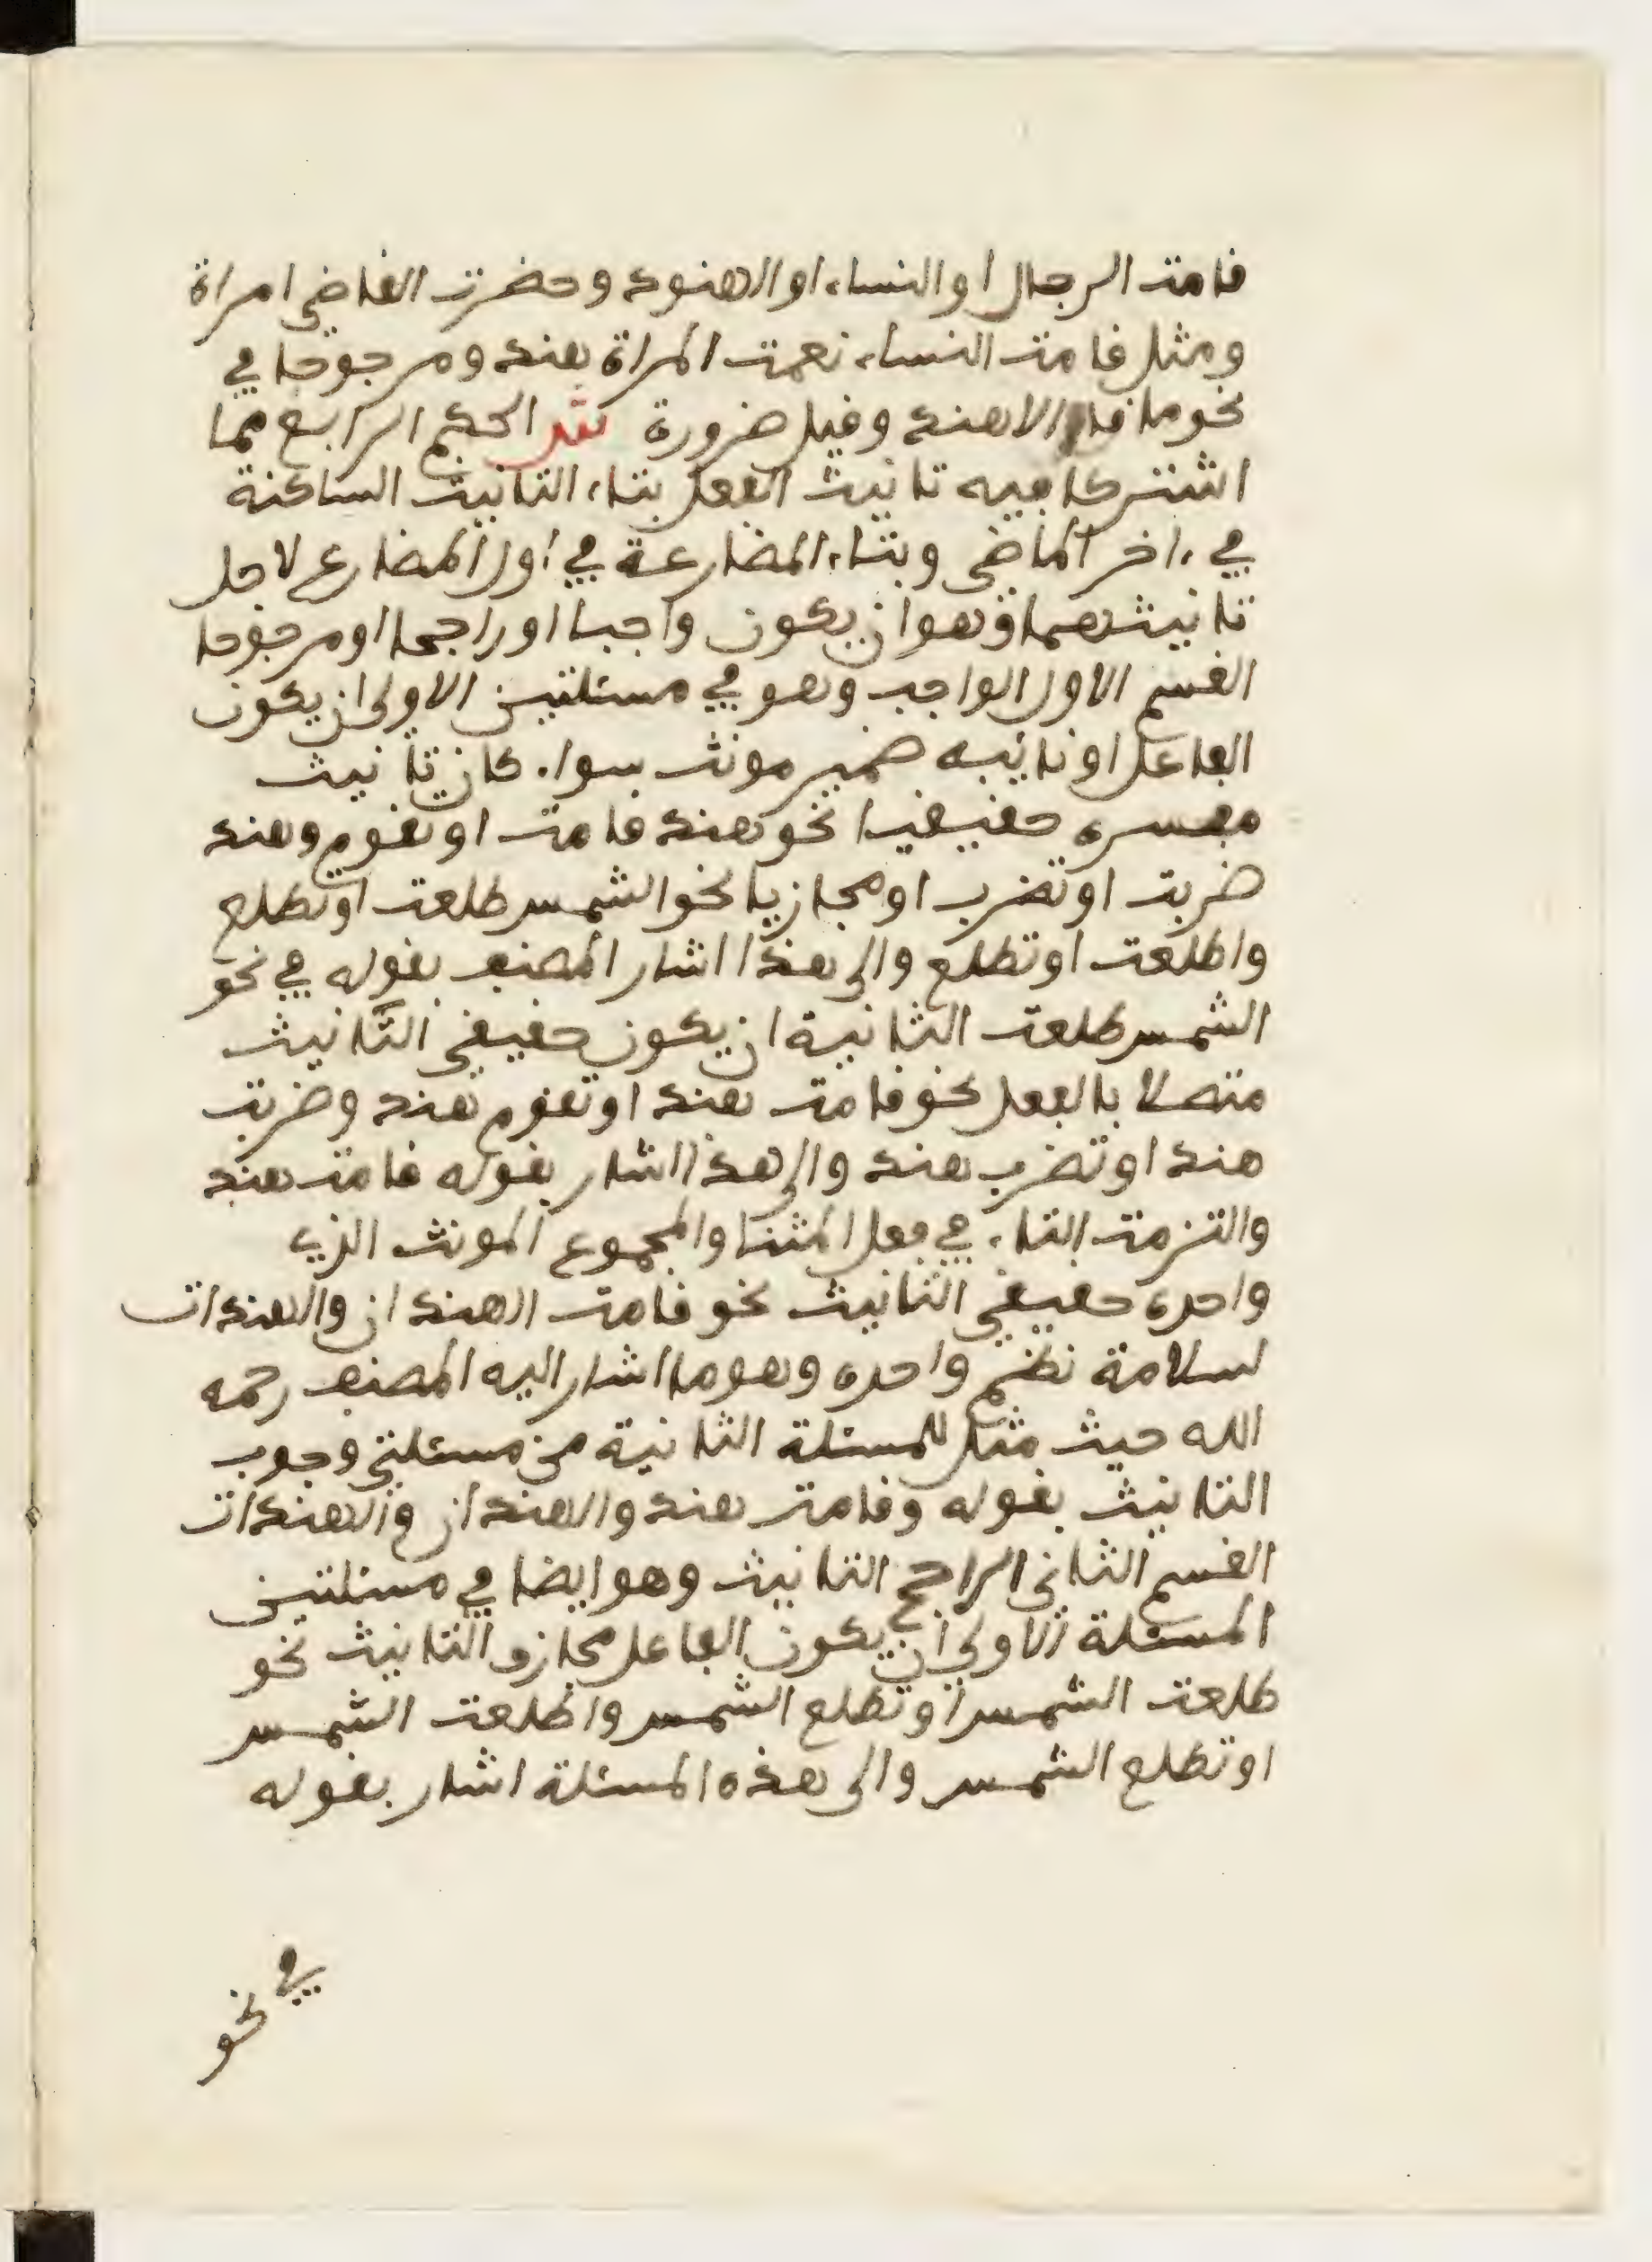 قامت الرجال او النساء او الهنود وحضرت القاضي امراة
ومثل قامت النساء نعمت المراة هند ومرجوحا في
نحو ما قام الا هند وقيل ضرورة الحكم الرابع مما
اشتركا فيه تانيث الفعل بتاء التانيث الساكنة
في ءاخر الماضي وبتاء المضارعة في اول المضارع لاجل
تانيثهما وهو ان يكون واجبا او راجحا او مرجوحا
القسم الاول الواجب وهو في مسئلتين الاولى ان يكون
الفاعل او نايبه ضمير مونث سواء كان تانيث
مفسره حقيقيا نحو هند قامت او تقوم وهند
ضربت او تضرب او مجازيا نحو الشمس طلعت او تطلع
واطلعت او تطلع والى هذا اشار المصنف بقوله في نحو
الشمس طلعت الثانية ان يكون حقيقي التانيث
متصلا بالفعل نحو قامت هند او تقوم هند وضربت
هند او تضرب هند والى هذا اشار بقوله قامت هند
والتزمت التاء في فعل المثنا والمجموع المونث الذي
واحده حقيقي التانيث نحو قامت الهندان والهندات
لسلامة نظم واحده وهو ما اشار اليه المصنف رحمه
الله حيث مثل للمسئلة الثانية من مسئلتي وجوب
التانيث بقوله وقامت هند والهندان والهندات
القسم الثاني الراجح التانيث وهو ايضا في مسئلتين
المسئلة الاولى ان يكون الفاعل مجازي التانيث نحو
طلعت الشمس او تطلع الشمس واطلعت الشمس
او تطلع الشمس والى هذه المسئلة اشار بقوله
في نحو